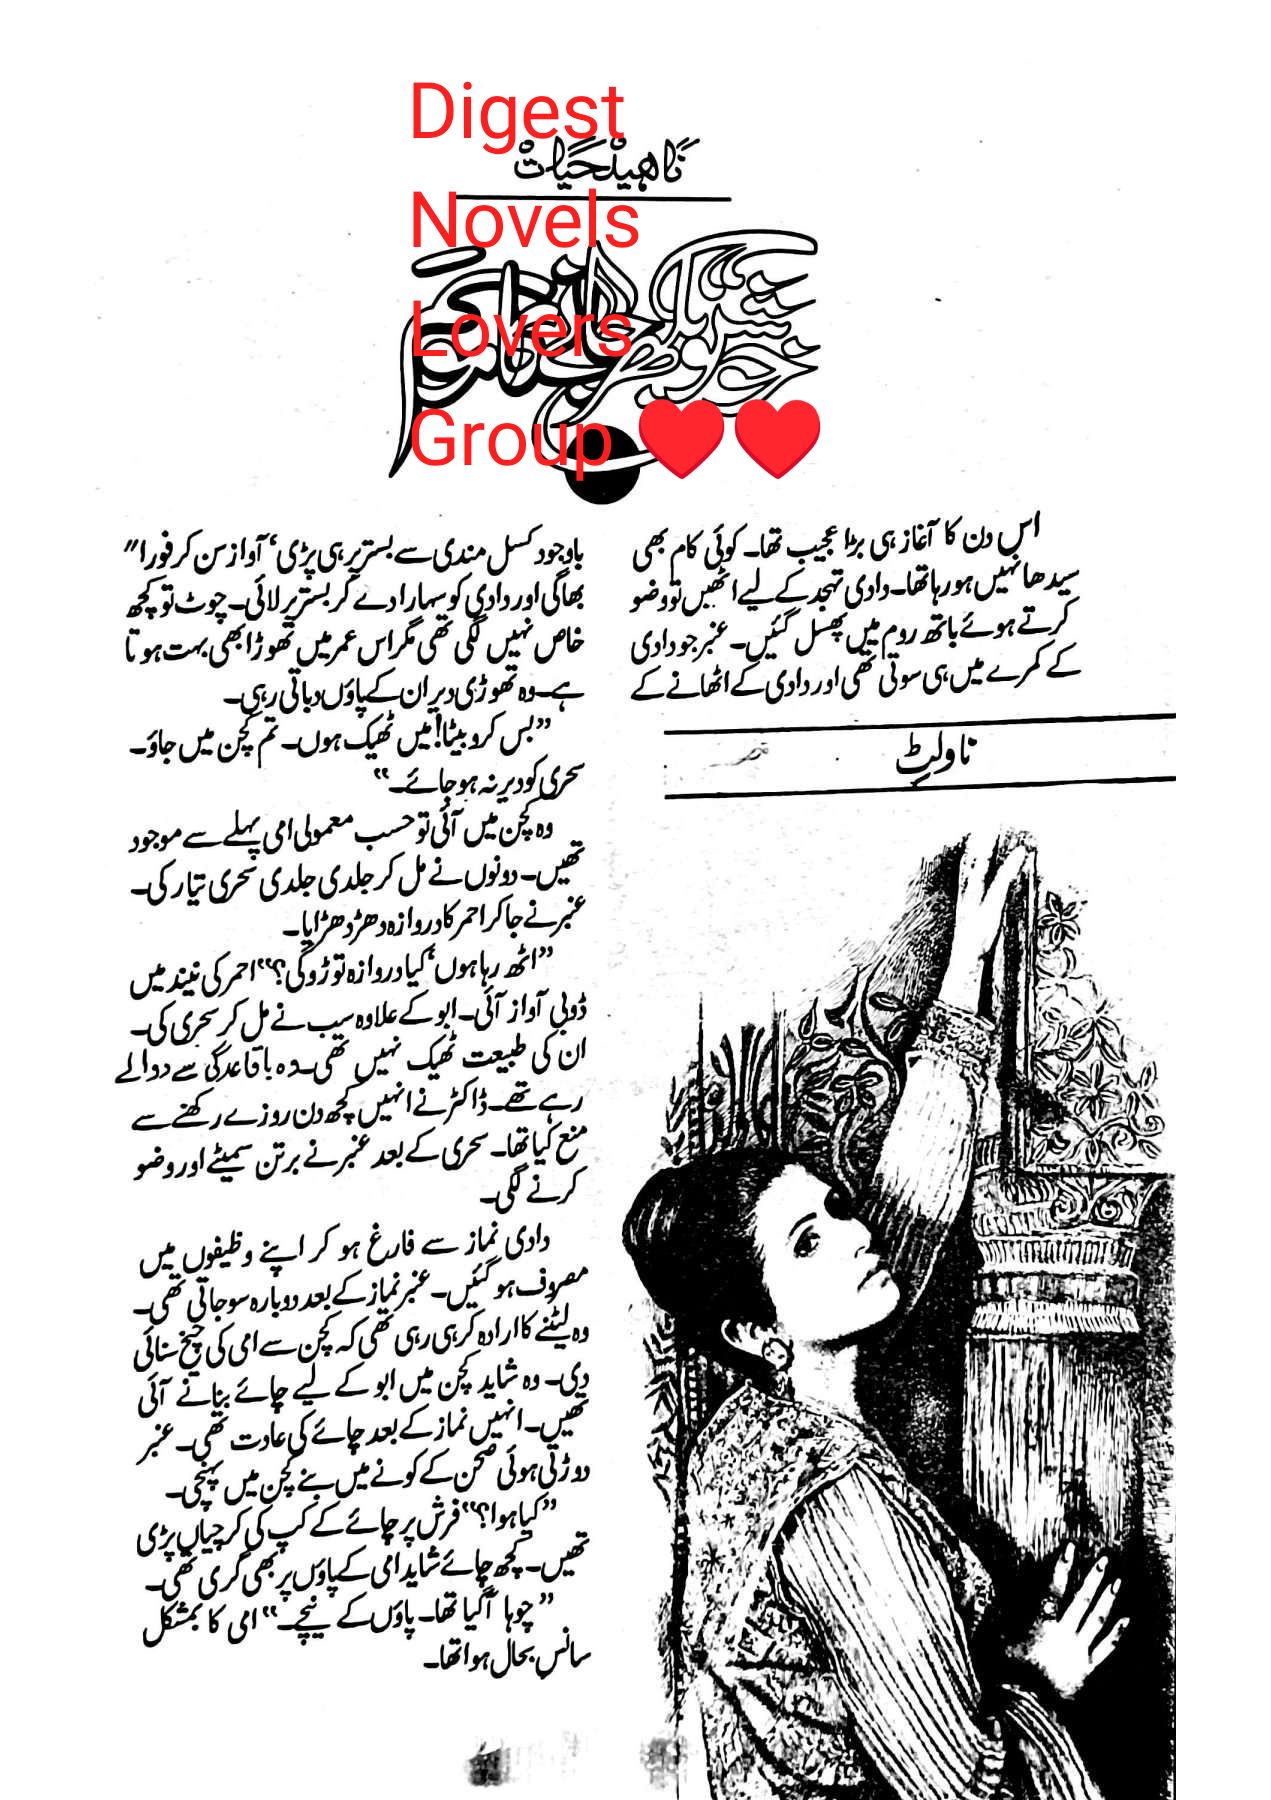 Digest
Novels
Lovers
Group ♥♥
نَاهِيد حَيَات
اس دن کا آغاز ہی بڑا عجیب تھا۔ کوئی کام بھی
سیدھا نہیں ہو رہا تھا۔ دادی تہجد کے لیے اٹھیں تو وضو
کرتے ہوئے باتھ روم میں پھسل گئیں۔ عنبر جو دادی
کے کمرے میں ہی سوتی تھی اور دادی کے اٹھانے کے
ناولٹ
باوجود کسل مندی سے بستر پر ہی پڑی، آواز سن کر فورا"
بھاگی اور دادی کو سہارا دے کر بستر پر لائی۔ چوٹ تو کچھ
خاص نہیں لگی تھی مگر اس عمر میں تھوڑا بھی بہت ہوتا
ہے۔ وہ تھوڑی دیر ان کے پاؤں دباتی رہی۔
"بس کرو بیٹا! میں ٹھیک ہوں۔ تم کچن میں جاؤ۔
سحری کو دیر نہ ہو جائے۔"
وہ کچن میں آئی تو حسب معمولی امی پہلے سے موجود
تھیں۔ دونوں نے مل کر جلدی جلدی سحری تیار کی۔
عنبر نے جا کر احمر کا دروازہ دھڑ دھڑایا۔
"اٹھ رہا ہوں، کیا دروازہ توڑو گی؟" احمر کی نیند میں
ڈوبی آواز آئی۔ ابو کے علاوہ سب نے مل کر سحری کی۔
ان کی طبیعت ٹھیک نہیں تھی۔ وہ باقاعدگی سے دوا لے
رہے تھے۔ ڈاکٹر نے انہیں کچھ دن روزے رکھنے سے
منع کیا تھا۔ سحری کے بعد عنبر نے برتن سمیٹے اور وضو
کرنے لگی۔
دادی نماز سے فارغ ہو کر اپنے وظیفوں میں
مصروف ہو گئیں۔ عنبر نماز کے بعد دوبارہ سو جاتی تھی۔
وہ لیٹنے کا ارادہ کر ہی رہی تھی کہ کچن سے امی کی چیخ سنائی
دی۔ وہ شاید کچن میں ابو کے لیے چائے بنانے آئی
تھیں۔ انہیں نماز کے بعد چائے کی عادت تھی۔ عنبر
دوڑتی ہوئی صحن کے کونے میں بنے کچن میں پہنچی۔
"کیا ہوا؟" فرش پر چائے کے کپ کی کرچیاں پڑی
تھیں۔ کچھ چائے شاید امی کے پاؤں پر بھی گری تھی۔
"چوہا آگیا تھا۔ پاؤں کے نیچے۔" امی کا بمشکل
سانس بحال ہوا تھا۔